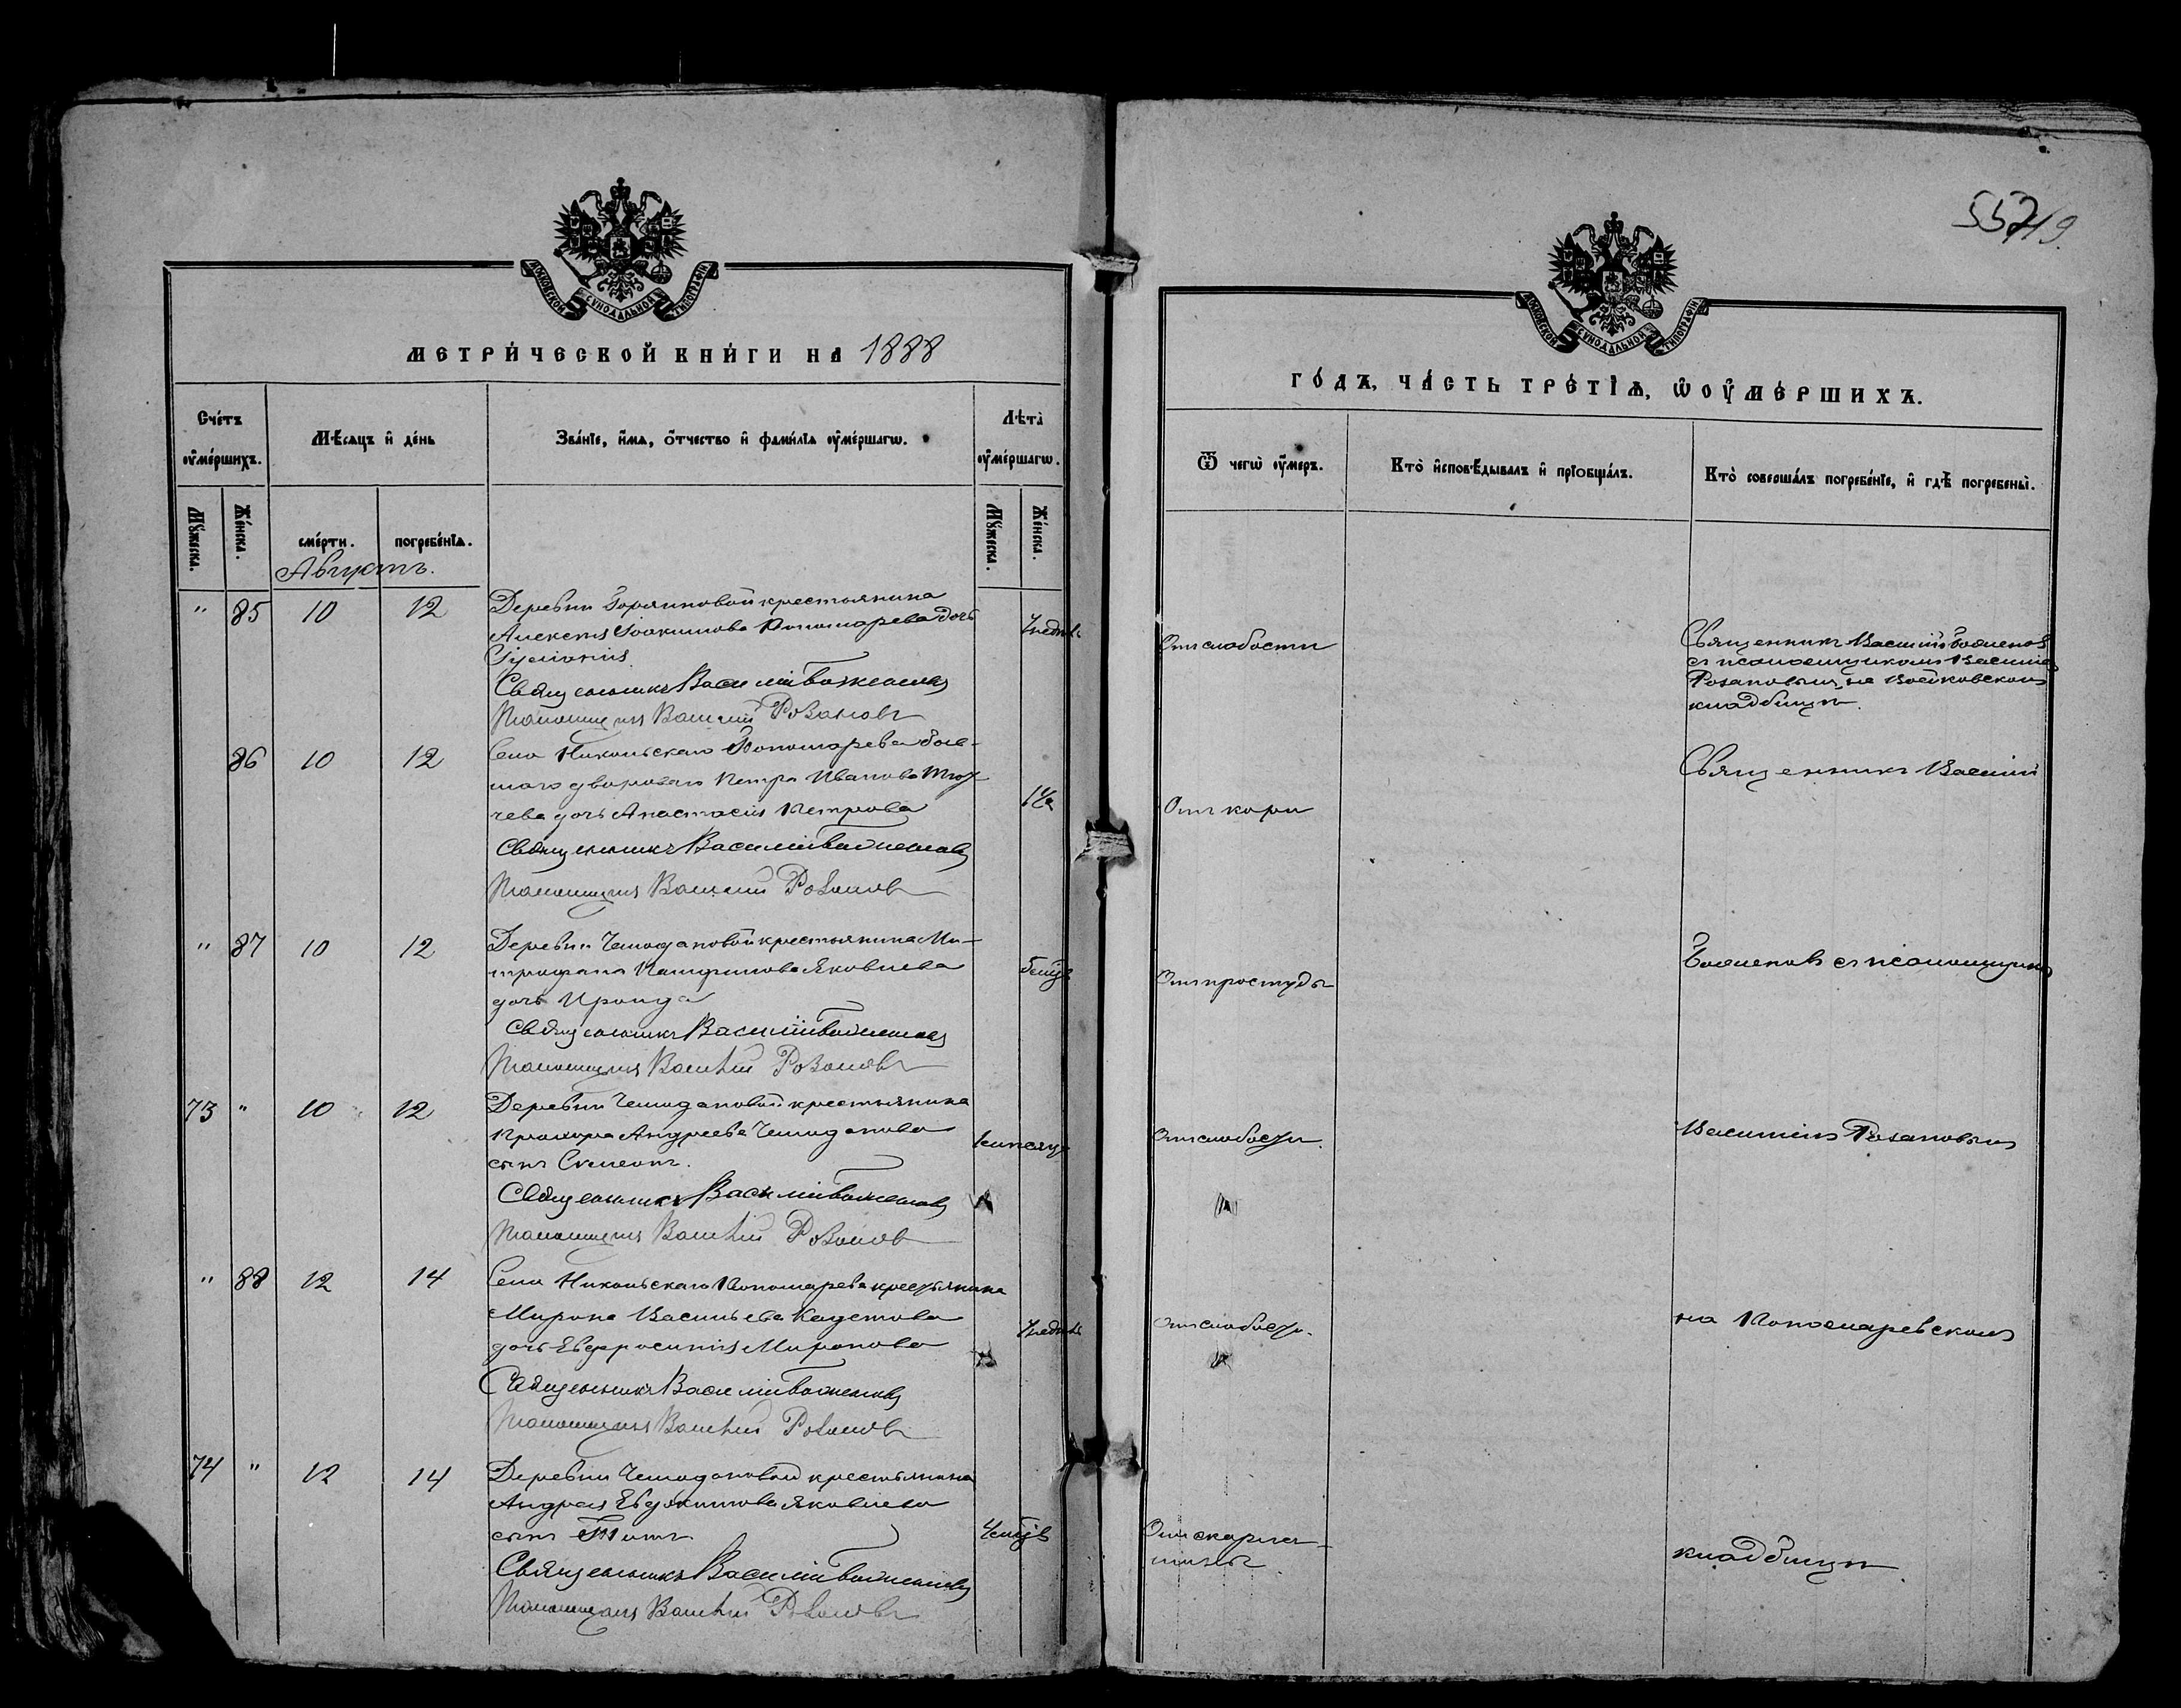 МОСКОВСКОЙ СѴНОДАЛЬНОЙ ТИПОГРАФІИ
МЕТРИ́ЧЕСКОЙ КНИ́ГИ НА 1888
Сче́тъ ᲂу҆ме́ршихъ.
Мѣ́сяцъ и҆ де́нь
Зва́нїе, и҆́мѧ, ѻ҆́тчество и҆ фами́лїѧ ᲂу҆ме́ршагѡ.
Лѣта̀ ᲂу҆ме́ршагѡ.
Мꙋ́жеска.
Же́нска.
сме́рти.
погребе́нїѧ.
Мꙋ́жеска.
Же́нска.
Августъ.
" 85 10 12 Деревни крестьянина
Алексѣя Іоакимова Пономарева дочь
7 недѣль
Священникъ Василій Боженовъ
Псаломщикъ Василій Розановъ
86 10 12 Села Никольскаго Пономарева быв-
шаго двороваго Петра Иванова
чева дочь Анастасія Петрова
Священникъ Василій Боженовъ
Псаломщикъ Василій Розановъ
" 87 10 12 Деревни Чемодановой крестьянина Ми-
трофана Яковлева
дочь Ираида
5 мцѣв
Священникъ Василій Боженовъ
Псаломщикъ Василій Розановъ
73 " 10 12 Деревни Чемодановой крестьянина
Прохора Андреева Чемоданова
сынъ Симеонъ.
1 мѣсяцъ
Священникъ Василій Боженовъ
Псаломщикъ Василій Розановъ
" 88 12 14 Села Никольскаго Пономарева крестьянина
Мирона Васильева Кадетова
дочь Евфросинія Миронова
7 недѣль
Священникъ Василій Боженовъ
Псаломщикъ Василій Розановъ
74 " 12 14 Деревни Чемодановой крестьянина
Андрея Евдокимова Яковлева
сынъ Титъ
4 мцѣв
Священникъ Василій Боженовъ
Псаломщикъ Василій Розановъ
МОСКОВСКОЙ СѴНОДАЛЬНОЙ ТИПОГРАФІИ
ГО́ДЪ, ЧА́СТЬ ТРЕ́ТЇѦ, Ѡ҆ ОУ҆МЕ́РШИХЪ.
Ѿ чегѡ̀ ᲂу҆́меръ.
Кто̀ и҆сповѣ́дывалъ и҆ прїѡбща́лъ.
Кто̀ соверша́лъ погребе́нїе, и҆ гдѣ̀ погребены̀.
Отъ слабости
Священникъ Василій Боженовъ
съ псаломщикомъ Василіемъ
Розановымъ, на Войковскомъ
кладбищѣ.
Отъ кори
Священникъ Василій
Отъ простуды
Боженовъ съ псаломщикомъ
Отъ слабости.
Василіемъ Розановымъ
Отъ слабости.
на Пономаревскомъ
Отъ скарла-
тины
кладбищѣ.